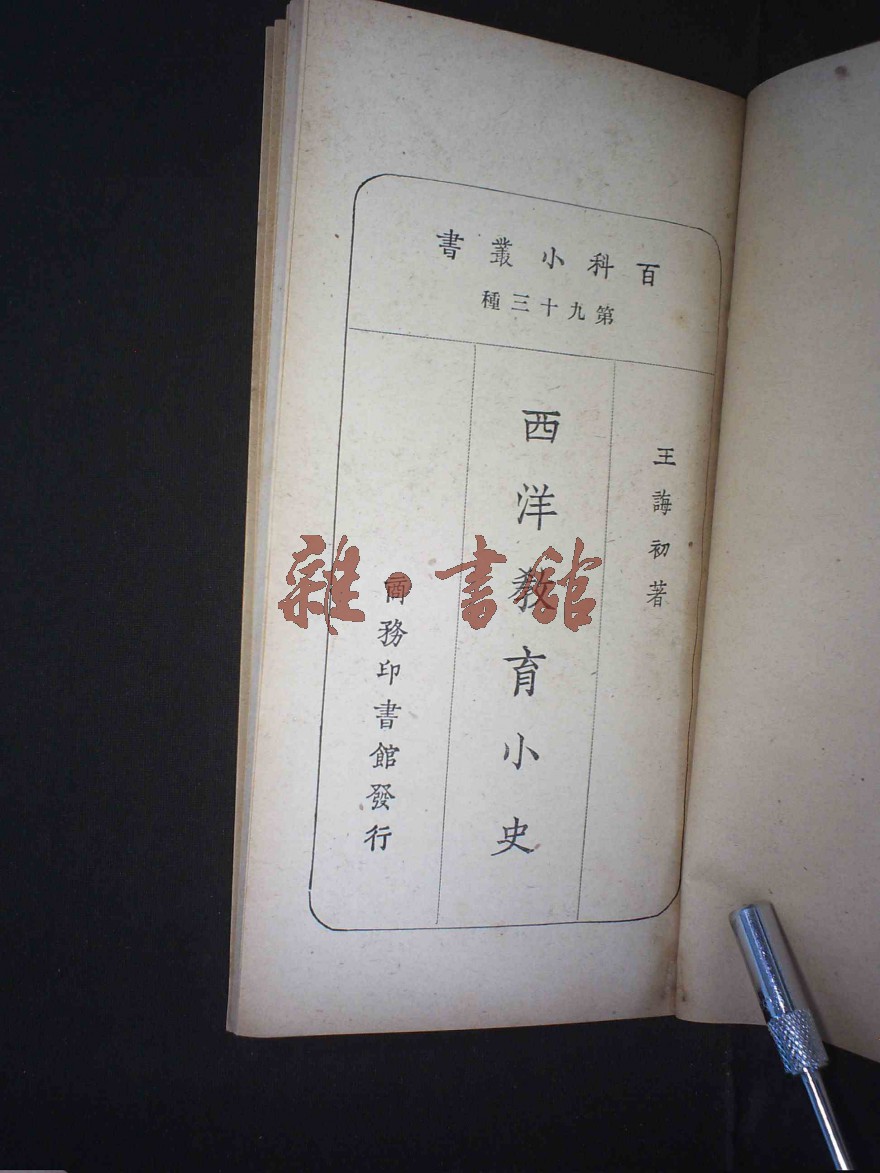 百科小叢書
第九十三種
王誨初著
西洋教育小史
商務印書館發行
雜·書館